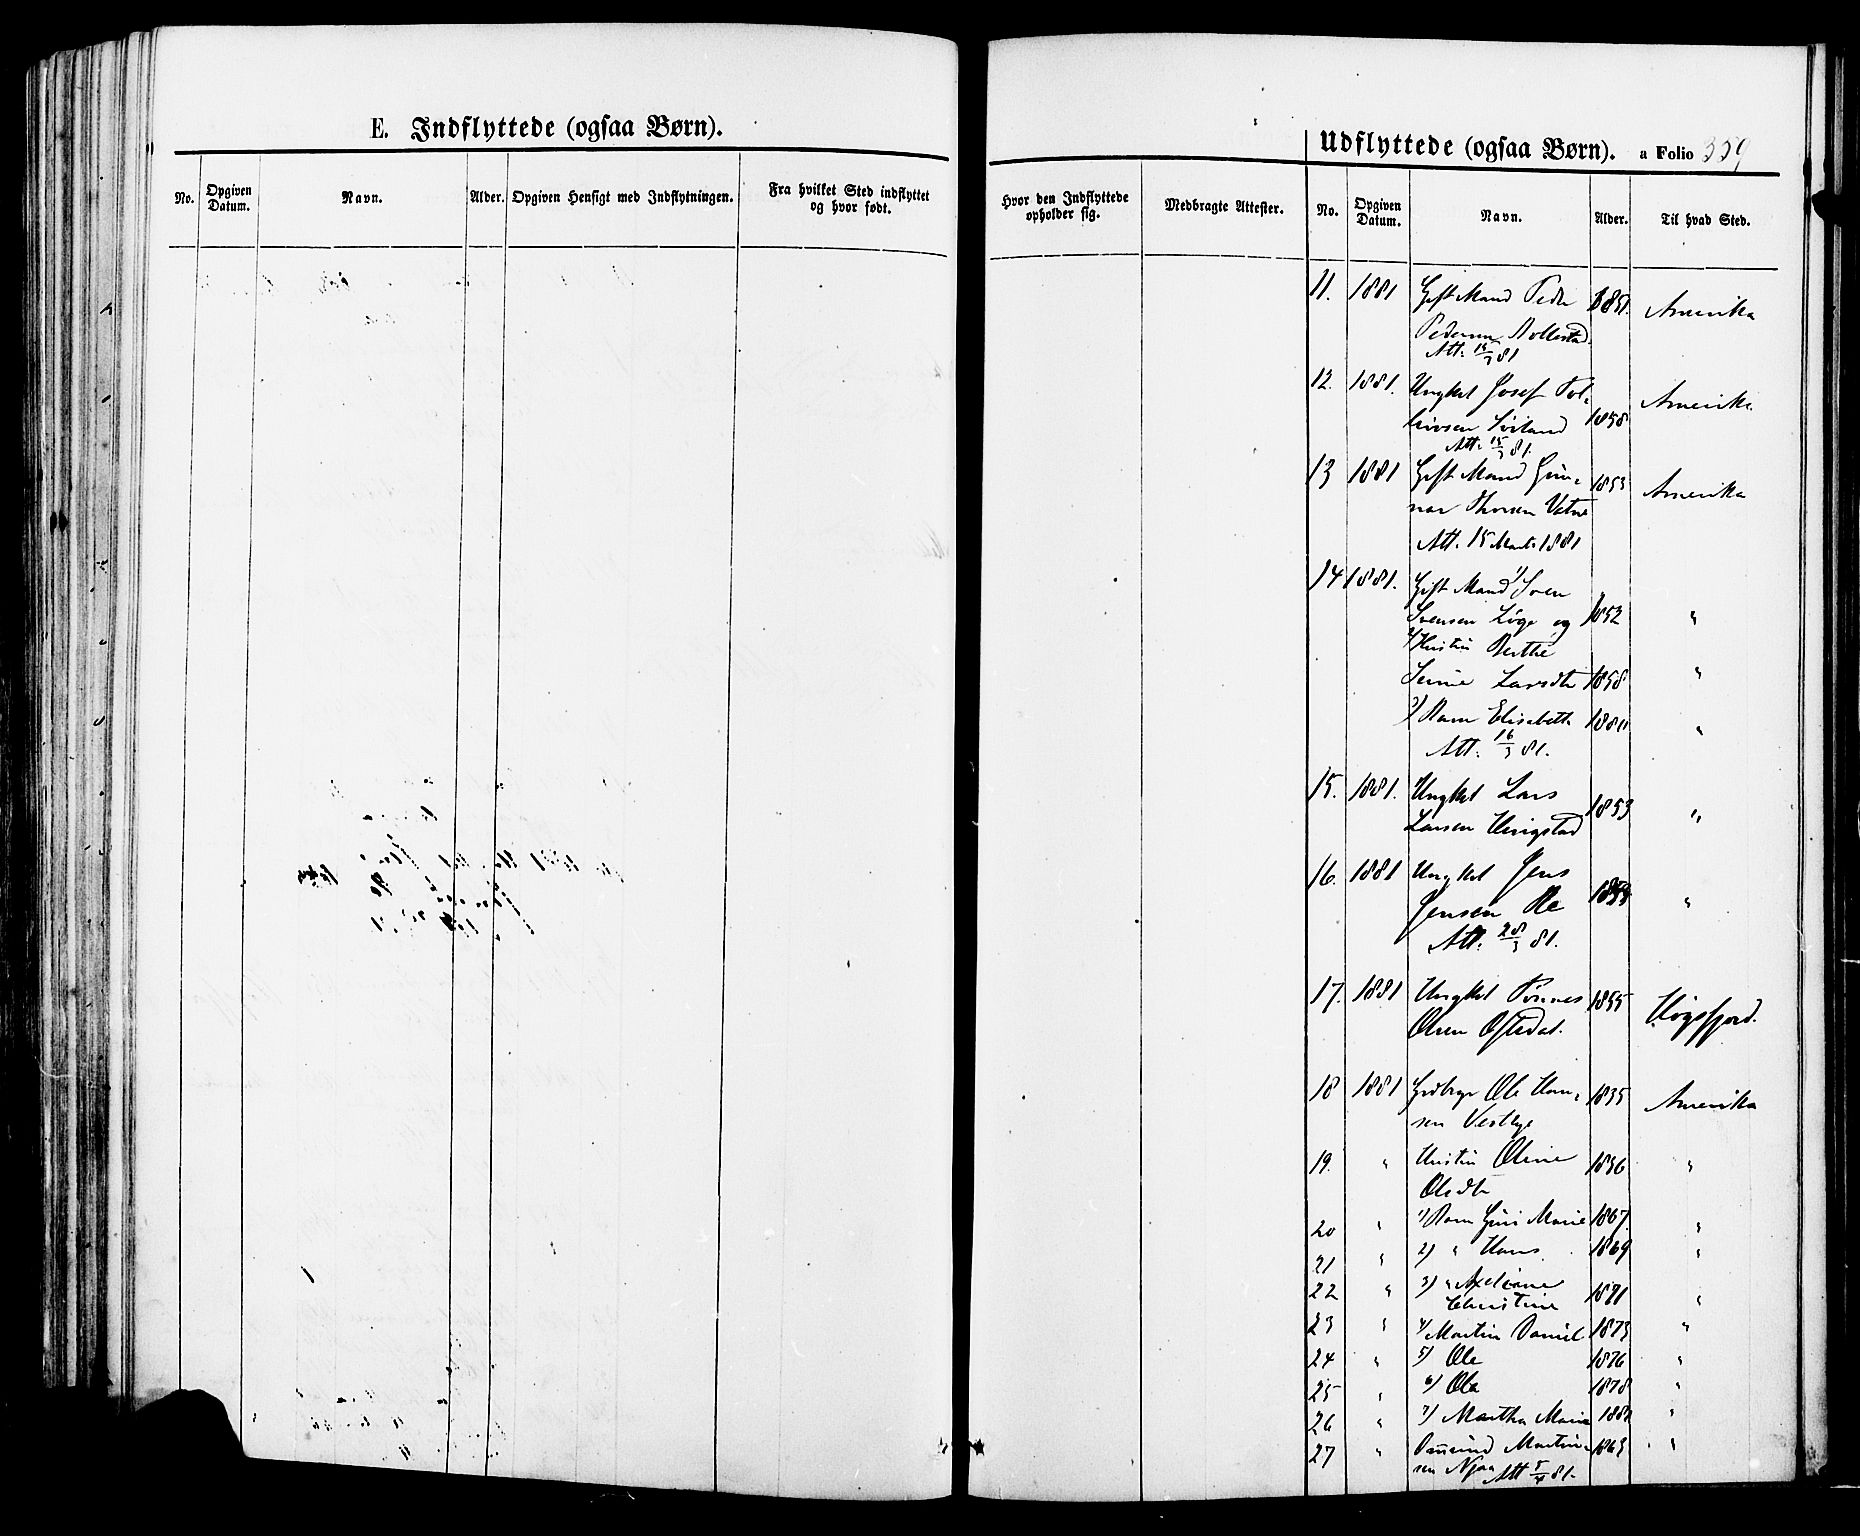 E. Indflyttede (ogsaa Børn).
No. Opgiven Datum. Navn. Alder. Opgiven Hensigt med Indflytningen. Fra hvilket Sted indflyttet og hvor født.
Hvor den Indflyttede opholder sig. Medbragte Attester.
Udflyttede (ogsaa Børn). a Folio 359
No. Opgiven Datum. Navn. Alder. Til hvad Sted.
11. 1881 Gift Mand Peder 1851. Amerika
Pedersen Bollestad.
Att. 15/3 81
12. 1881. Ungkel Josef Tol- 1858 Amerika
leivsen
Att. 15/3 81.
13 1881 Gift Mand Gun- 1853 Amerika
nar Thorsen Vatne
Att. 15 Marts 1881
14 1881. Gift Mand 1) Sven
Svensen Løge og 1852 "
2) Hustru Berthe
Larsdtr 1858 "
3) Barn Elisabeth 1880 "
Att. 16/3 81.
15. 1881. Ungkel Lars 1853 "
Larsen Ungstad
16. 1881 Ungkel Jens
Jensen Re "
Att. 28/3 81.
17. 1881 Ungkel Tønnes 1855 Høgsfjord.
Olsen Oftedal.
18 1881 Ole Han- 1835 Amerika
sen Vestbye
19. " Hustru Oline 1836 "
Olsdtr
20 " 1) Barn Guri Marie 1867. "
21 " 2) " Hans. 1869 "
22 " 3) " Axeliane 1871 "
Christine
23 " 4) Martin Daniel 1873 "
24 " 5) Ole 1876 "
25 " 6) Ola 1878 "
26 " 7) Martha Marie "
27 " Martin- 1863 "
sen Njaa Att 5/4 81.